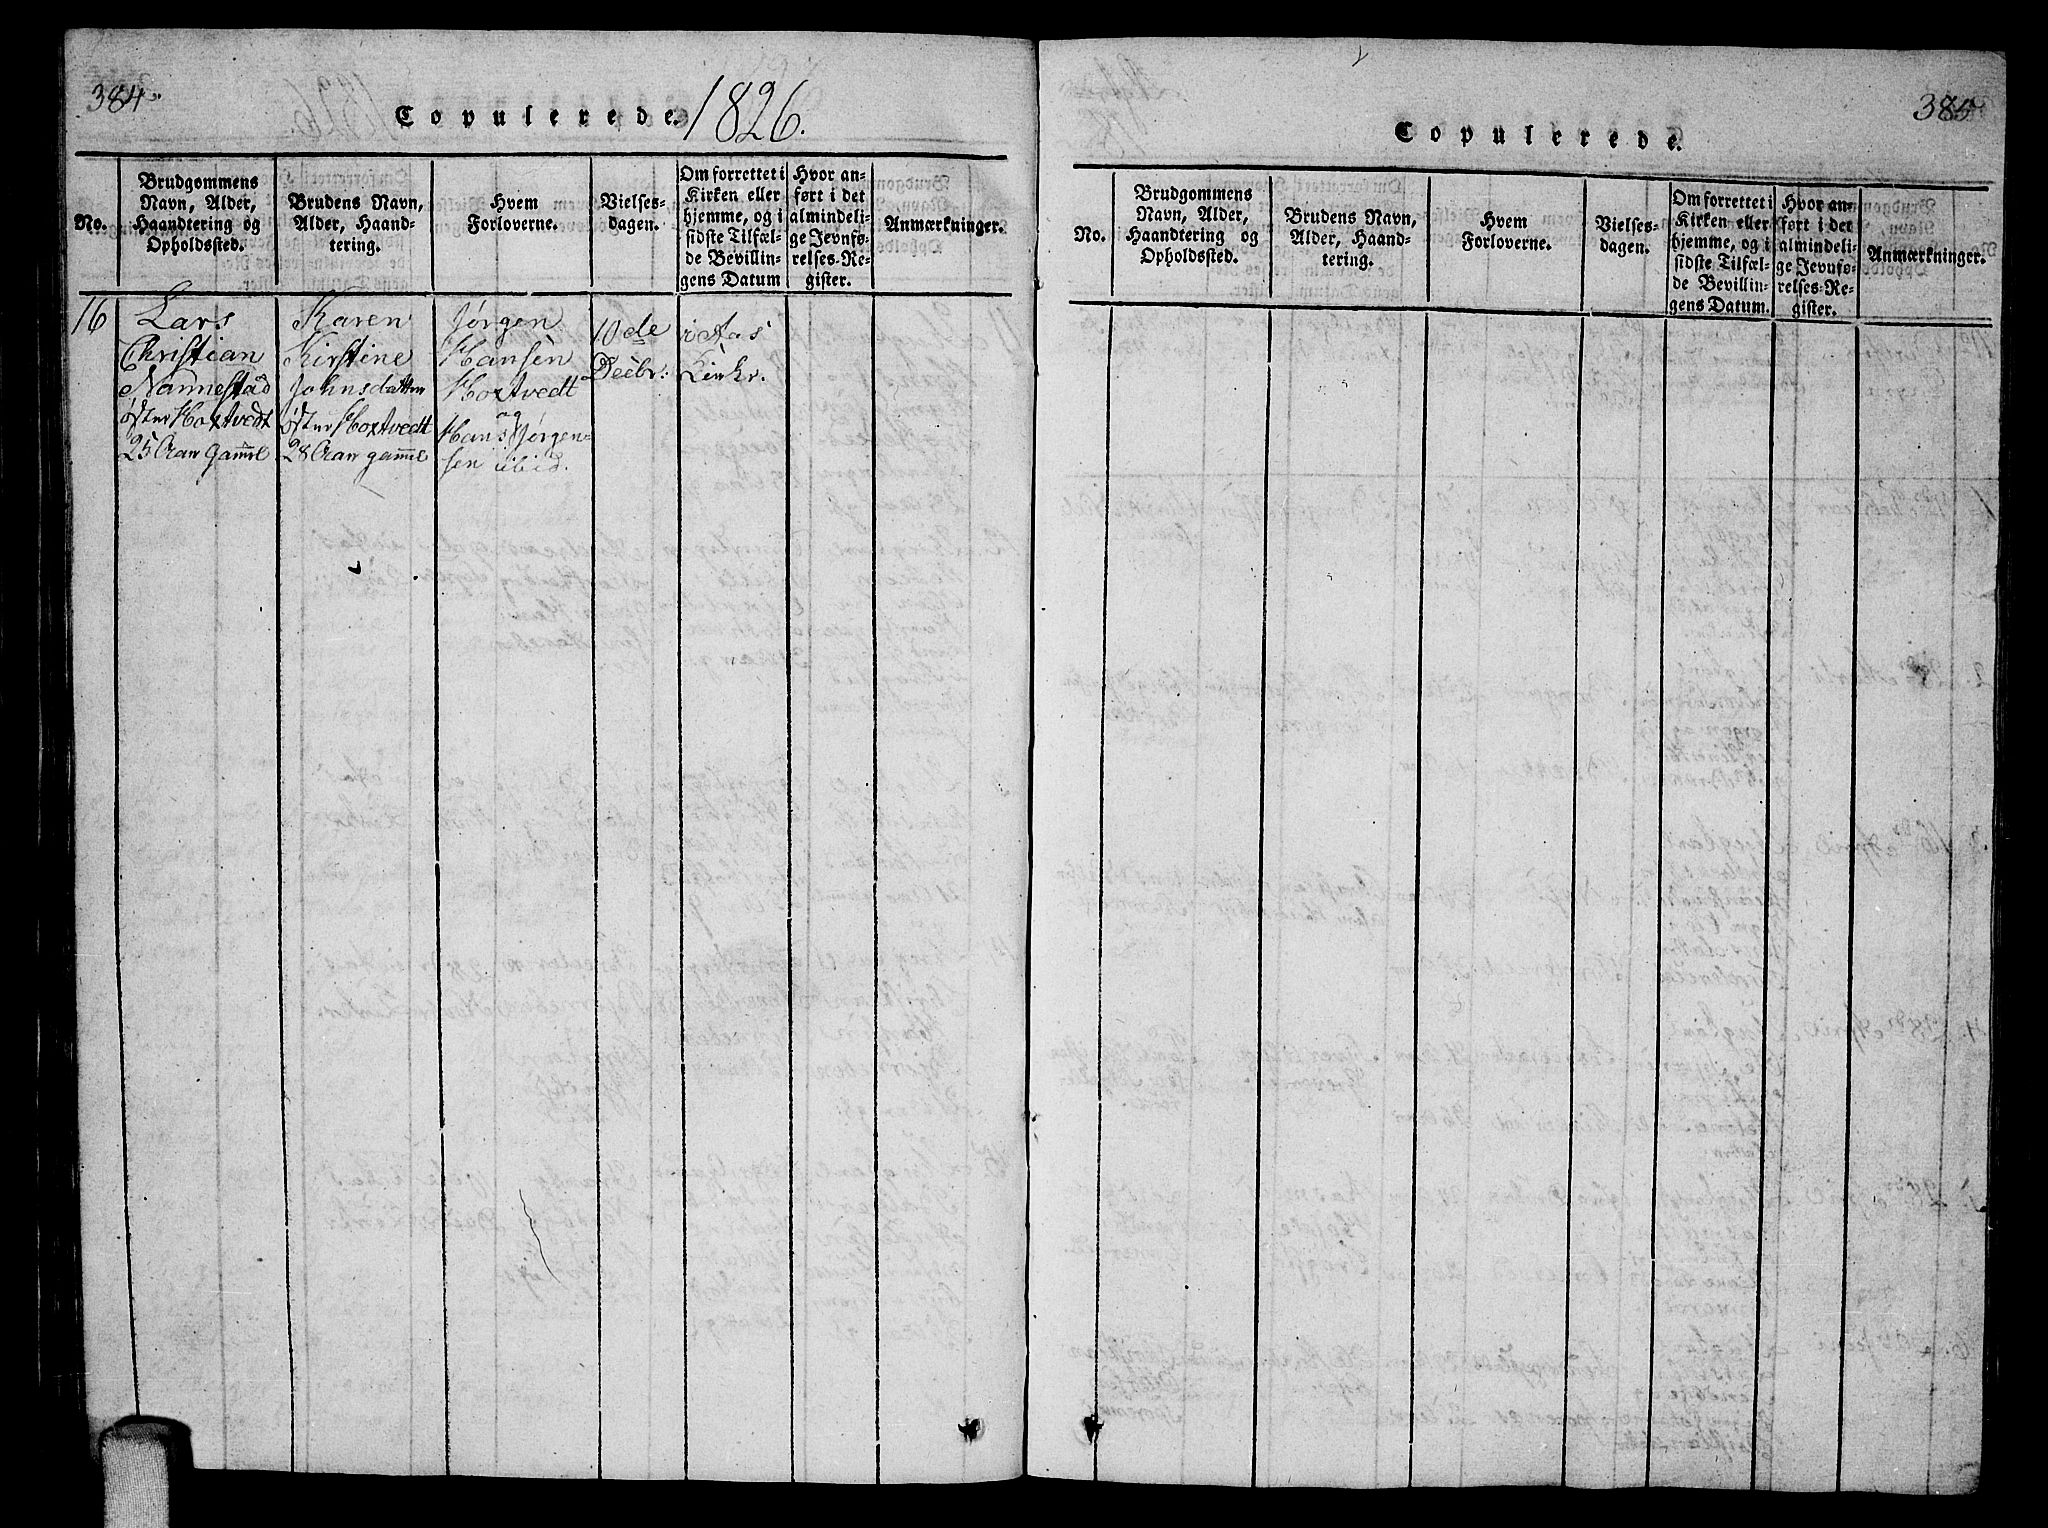 384
Copulerede. 1826.
No.
Brudgommens
Navn, Alder,
Haandtering og
Opholdssted.
Brudens Navn,
Alder, Haand-
tering.
Hvem
Forloverne.
Vielses-
dagen.
Om forrettet i
Kirken eller
hjemme, og i
sidste Tilfæl-
de Bevillin-
gens Datum
Hvor an-
ført i det
almindeli-
ge Jevnfø-
relses-Re-
gister.
Anmærkninger.
16
Lars
Christian
Nannestad
øster Hoxtvedt
25 Aar gaml
Karen
Kirstine
Johnsdatter
øster Hoxtvedt
28 Aar gaml
Jørgen
Hansen
Hoxtvedt
og
Hans Jørgen-
sen ibid.
10de
Decbr:
i Aas
Kirke.
385
Copulerede.
No.
Brudgommens
Navn, Alder,
Haandtering og
Opholdssted.
Brudens Navn,
Alder, Haand-
tering.
Hvem
Forloverne.
Vielses-
dagen.
Om forrettet i
Kirken eller
hjemme, og i
sidste Tilfæl-
de Bevillin-
gens Datum.
Hvor an-
ført i det
almindeli-
ge Jevnfø-
relses-Re-
gister.
Anmærkninger.